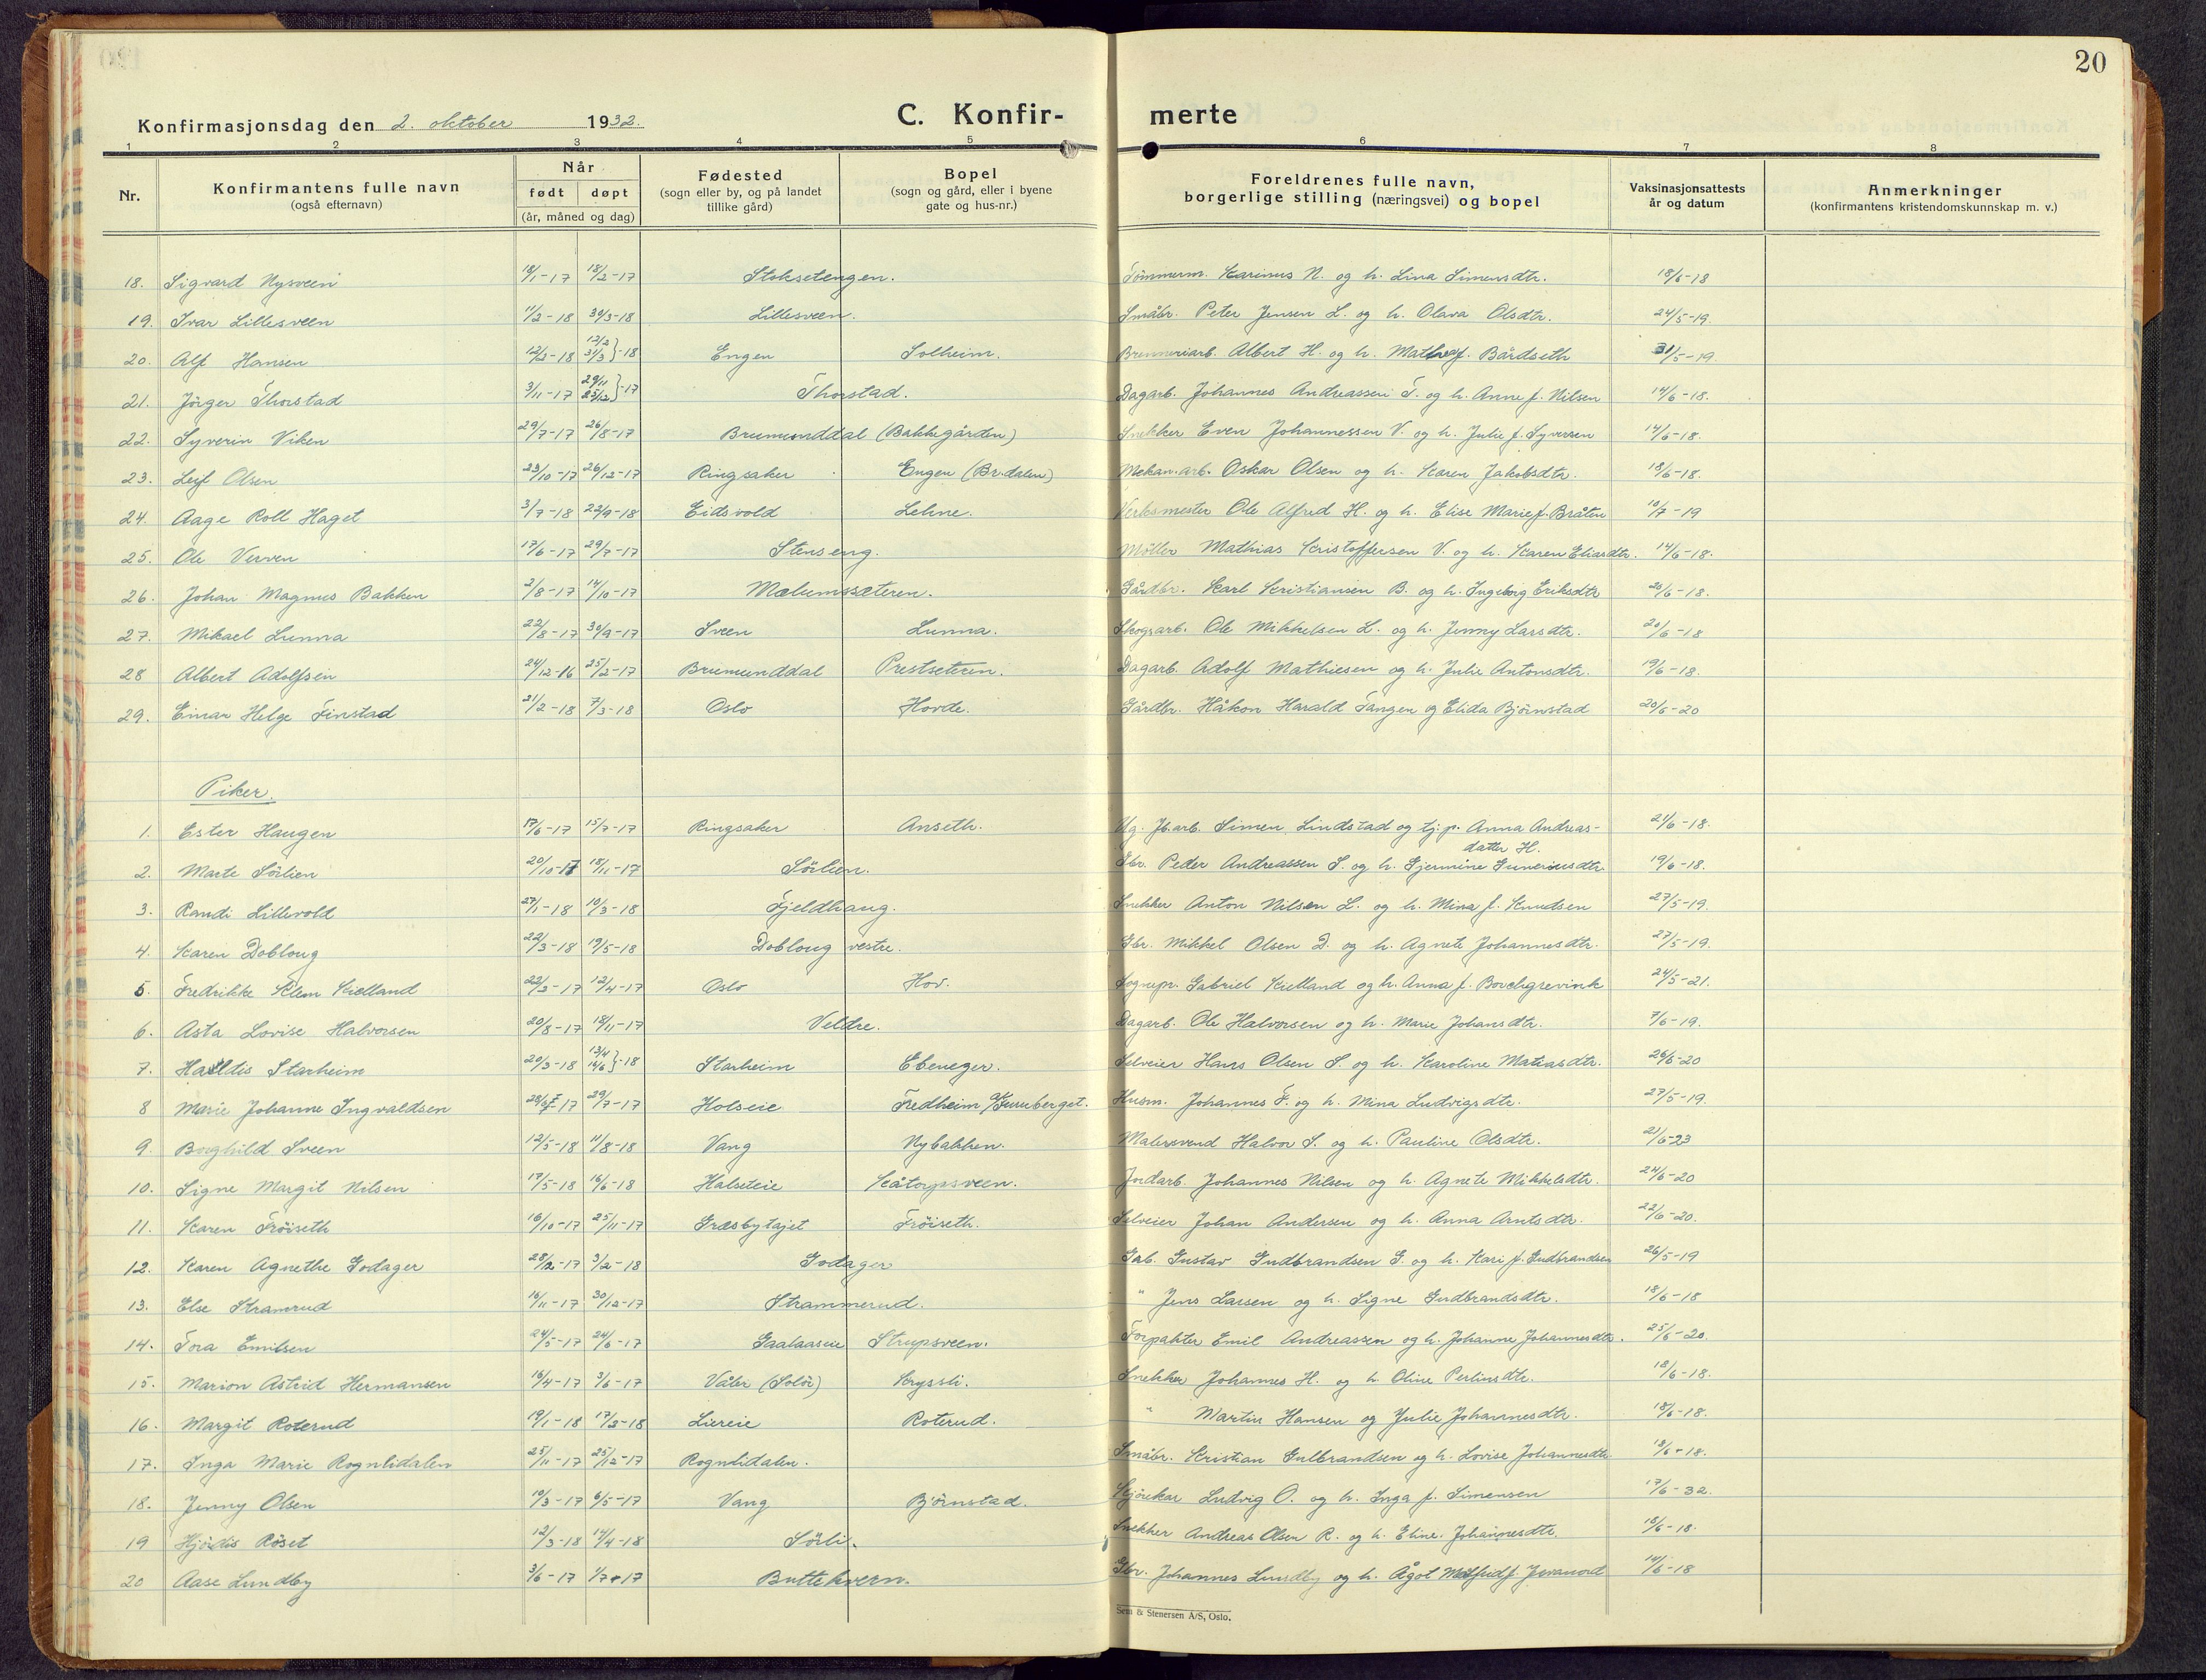 20
Konfirmasjonsdag den 2. oktober 1932.
C. Konfir-
merte
1 2 3 4 5 6 7 8
Nr.
Konfirmantens fulle navn
(også efternavn)
Når
født døpt
(år, måned og dag)
Fødested
(sogn eller by, og på landet
tillike gård)
Bopel
(sogn og gård, eller i byene
gate og hus-nr.)
Foreldrenes fulle navn,
borgerlige stilling (næringsvei) og bopel
Vaksinasjonsattests
år og datum
Anmerkninger
(konfirmantens kristendomskunnskap m. v.)
18. Sigvard Nysveen 18/1-17 18/2-17 Stoksetengen. Tömmerm. Karinus N. og h. Lina Simensdtr. 18/6-18
19. Ivar Lillesveen 11/2-18 30/3-18 Lillesveen. Småbr. Peter Jensen L. og h. Olava Olsdtr. 24/5-19.
20. Alf Hansen 12/2-18 31/3}-18 Engen Solheim. Brenneriarb. Albert H. og h. Mathea f. Bårdseth 31/5-19
21. Jörger Thorstad 3/11-17 29/11 25/12}-17 Thorstad. Dagarb. Johannes Andreassen T. og h. Anne f. Nilsen 14/6-18.
22. Syverin Viken 29/7-17 26/8-17 Brumunddal (Bakkegården) Snekker Even Johannessen V. og h. Julie f. Syversen 14/6-18.
23. Leif Olsen 23/10-17 26/12-17 Ringsaker Engen (Br.dalen) Mekan.arb. Oskar Olsen og h. Karen Jakobsdtr. 18/6-18.
24. Aage Roll Haget 3/7-18 22/9-18 Eidsvold Lehne. Verksmester Ole Alfred H. og h. Elise Marie f. Bråten 10/7-19
25. Ole Verven 17/6-17 29/7-17 Stenseng. Möller Mathias Kristoffersen V. og h. Karen Eliasdtr. 14/6-18.
26. Johan Magnus Bakken 2/8-17 14/10-17 Mælumssæteren. Gårdbr. Karl Kristiansen B. og h. Ingeborg Eriksdtr 20/6-18.
27. Mikael Lunna 22/8-17 30/9-17 Sveen Lunna. Skogsarb. Ole Mikkelsen L. og h. Jenny Larsdtr. 20/6-18
28 Albert Adolfsen 24/12-16 25/2-17 Brumunddal Prestseteren. Dagarb. Adolf Mathiesen og h. Julie Antonsdtr. 19/6-18.
29. Einar Helge Finstad 21/2-18 7/3-18 Oslo Hovde. Gårdbr. Håkon Harald Tangen og Elida Björnstad 20/6-20
Piker.
1. Ester Haugen 17/6-17 15/7-17 Ringsaker Anseth. Ug. Jb.arb. Simen Lindstad og tj.p. Anna Andreas-
datter H. 21/6-18.
2. Marte Sörlien 20/10-17 18/11-17 Sörlien. Gbr. Peder Andreassen S. og h. Gjermine Gunerius dtr. 19/6-18.
3. Randi Lillevold 27/1-18 10/3-18 Fjeldhaug. Snekker Anton Nilsen L. og h. Mina f. Knudsen 27/5-19.
4. Karen Dobloug 22/3-18 19/5-18 Dobloug vestre. Gbr. Mikkel Olsen D. og h. Agnete Johannesdtr. 27/5-19.
5. Fredrikke Klem Kielland 22/2-17 12/4-17 Oslo Hov. Sognepr. Gabriel Kielland og h. Anna f. 24/5-21.
6. Asta Lovise Halvorsen 20/8-17 18/11-17 Veldre. Dagarb. Ole Halvorsen og h. Marie Johansdtr. 7/6-19.
7. Halldis Starheim 20/3-18 13/4 14/6}-18 Starheim Ebeneger. Selveier Hans Olsen S. og h. Karoline Matiasdtr. 26/6-20
8 Marie Johanne Ingvaldsen 17 29/7-17 Holseie Fredheim Husm. Johannes F. og h. Mina Ludvigsdtr. 27/5-19.
9. Borghild Sveen 12/5-18 11/8-18 Vang Nybakken. Malersvend Halvor S. og h. Pauline Olsdtr. 21/6-23
10. Signe Margit Nilsen 17/5-18 16/6-18 Halseteie Kåtorpsveen. Jordarb. Johannes Nilsen og h. Agnete Mikkelsdtr. 24/6-20
11. Karen Fröiseth 16/10-17 25/11-17 Græsbytajet Fröiseth. Selveier Johan Andersen og h. Anna Arntsdtr. 22/6-20.
12. Karen Agnethe Godager 28/12-17 3/2-18 Godager Gab. Gustav Gudbrandsen G. og h. Kari f. Gudbrandsen 26/5-19
13. Else Stramrud 16/11-17 30/12-17 Strammerud. " Jens Larsen og h. Signe Gudbrandsdtr. 18/6-18
14. Tora Emilsen 24/5-17 24/6-17 Gaalaaseie Strupsveen. Forpakter Emil Andreassen og h. Johanne Johannesdtr. 25/6-20.
15. Marion Astrid Hermansen 16/4-17 3/6-17 Våler (Solör) Kryssli. Snekker Johannes H. og h. Oline Perlinsdtr. 18/6-18.
16. Margit Roterud 19/1-18 17/3-18 Liereie Roterud. " Martin Hansen og Julie Johannesdtr. 18/6-18.
17. Inga Marie Rognlidalen 25/11-17 25/12-17 Rognlidalen. Småbr. Kristian Gulbrandsen og h. Lovise Johannesdtr. 18/6-18.
18. Jenny Olsen 10/3-17 6/5-17 Vang Björnstad. Kjörekar Ludvig O. og h. Inga f. Simensen 17/6-32.
19 Hjördis Röset 12/3-18 14/4-18 Sörli. Snekker Andreas Olsen R. og h. Eline Johannesdtr. 18/6-18.
20 Aase Lundby 3/6-17 1/7-17 Buttekvern. Gbr. Johannes Lundby og h. Ågot 14/6-18
Sem & Stenersen A/S, Oslo.